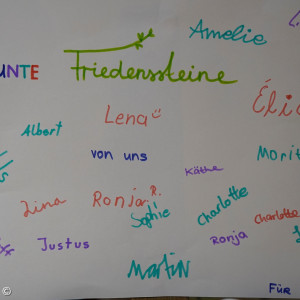 Amelie
UNTE Friedenssteine
Lena
Albert
von uns
Käthe
Lina Ronja R.
Sophie
Charlotte
Charlotte
Justus
Ronja
Martin
FÜR
©